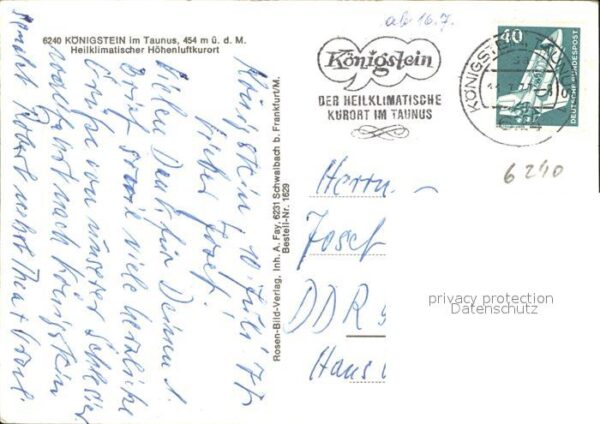 6240 KÖNIGSTEIN im Taunus, 454 m ü. d. M.
Heilklimatischer Höhenluftkurort
ab 16.7.
Königstein
DER HEILKLIMATISCHE
KURORT IM TAUNUS
KÖNIGSTEIN
40
DEUTSCHE BUNDESPOST
6240
Königstein 10. Juli 77
Lieber Josef!
Vielen Dank für Deinen
Brief sowie viele herzliche
Grüße von unserer
Wallfahrt nach Königstein
Rosen-Bild-Verlag, Inh. A. Fay, 6231 Schwalbach b. Frankfurt/M.
Bestell-Nr. 1629
Herrn
Josef
DDR
Hans
privacy protection
Datenschutz